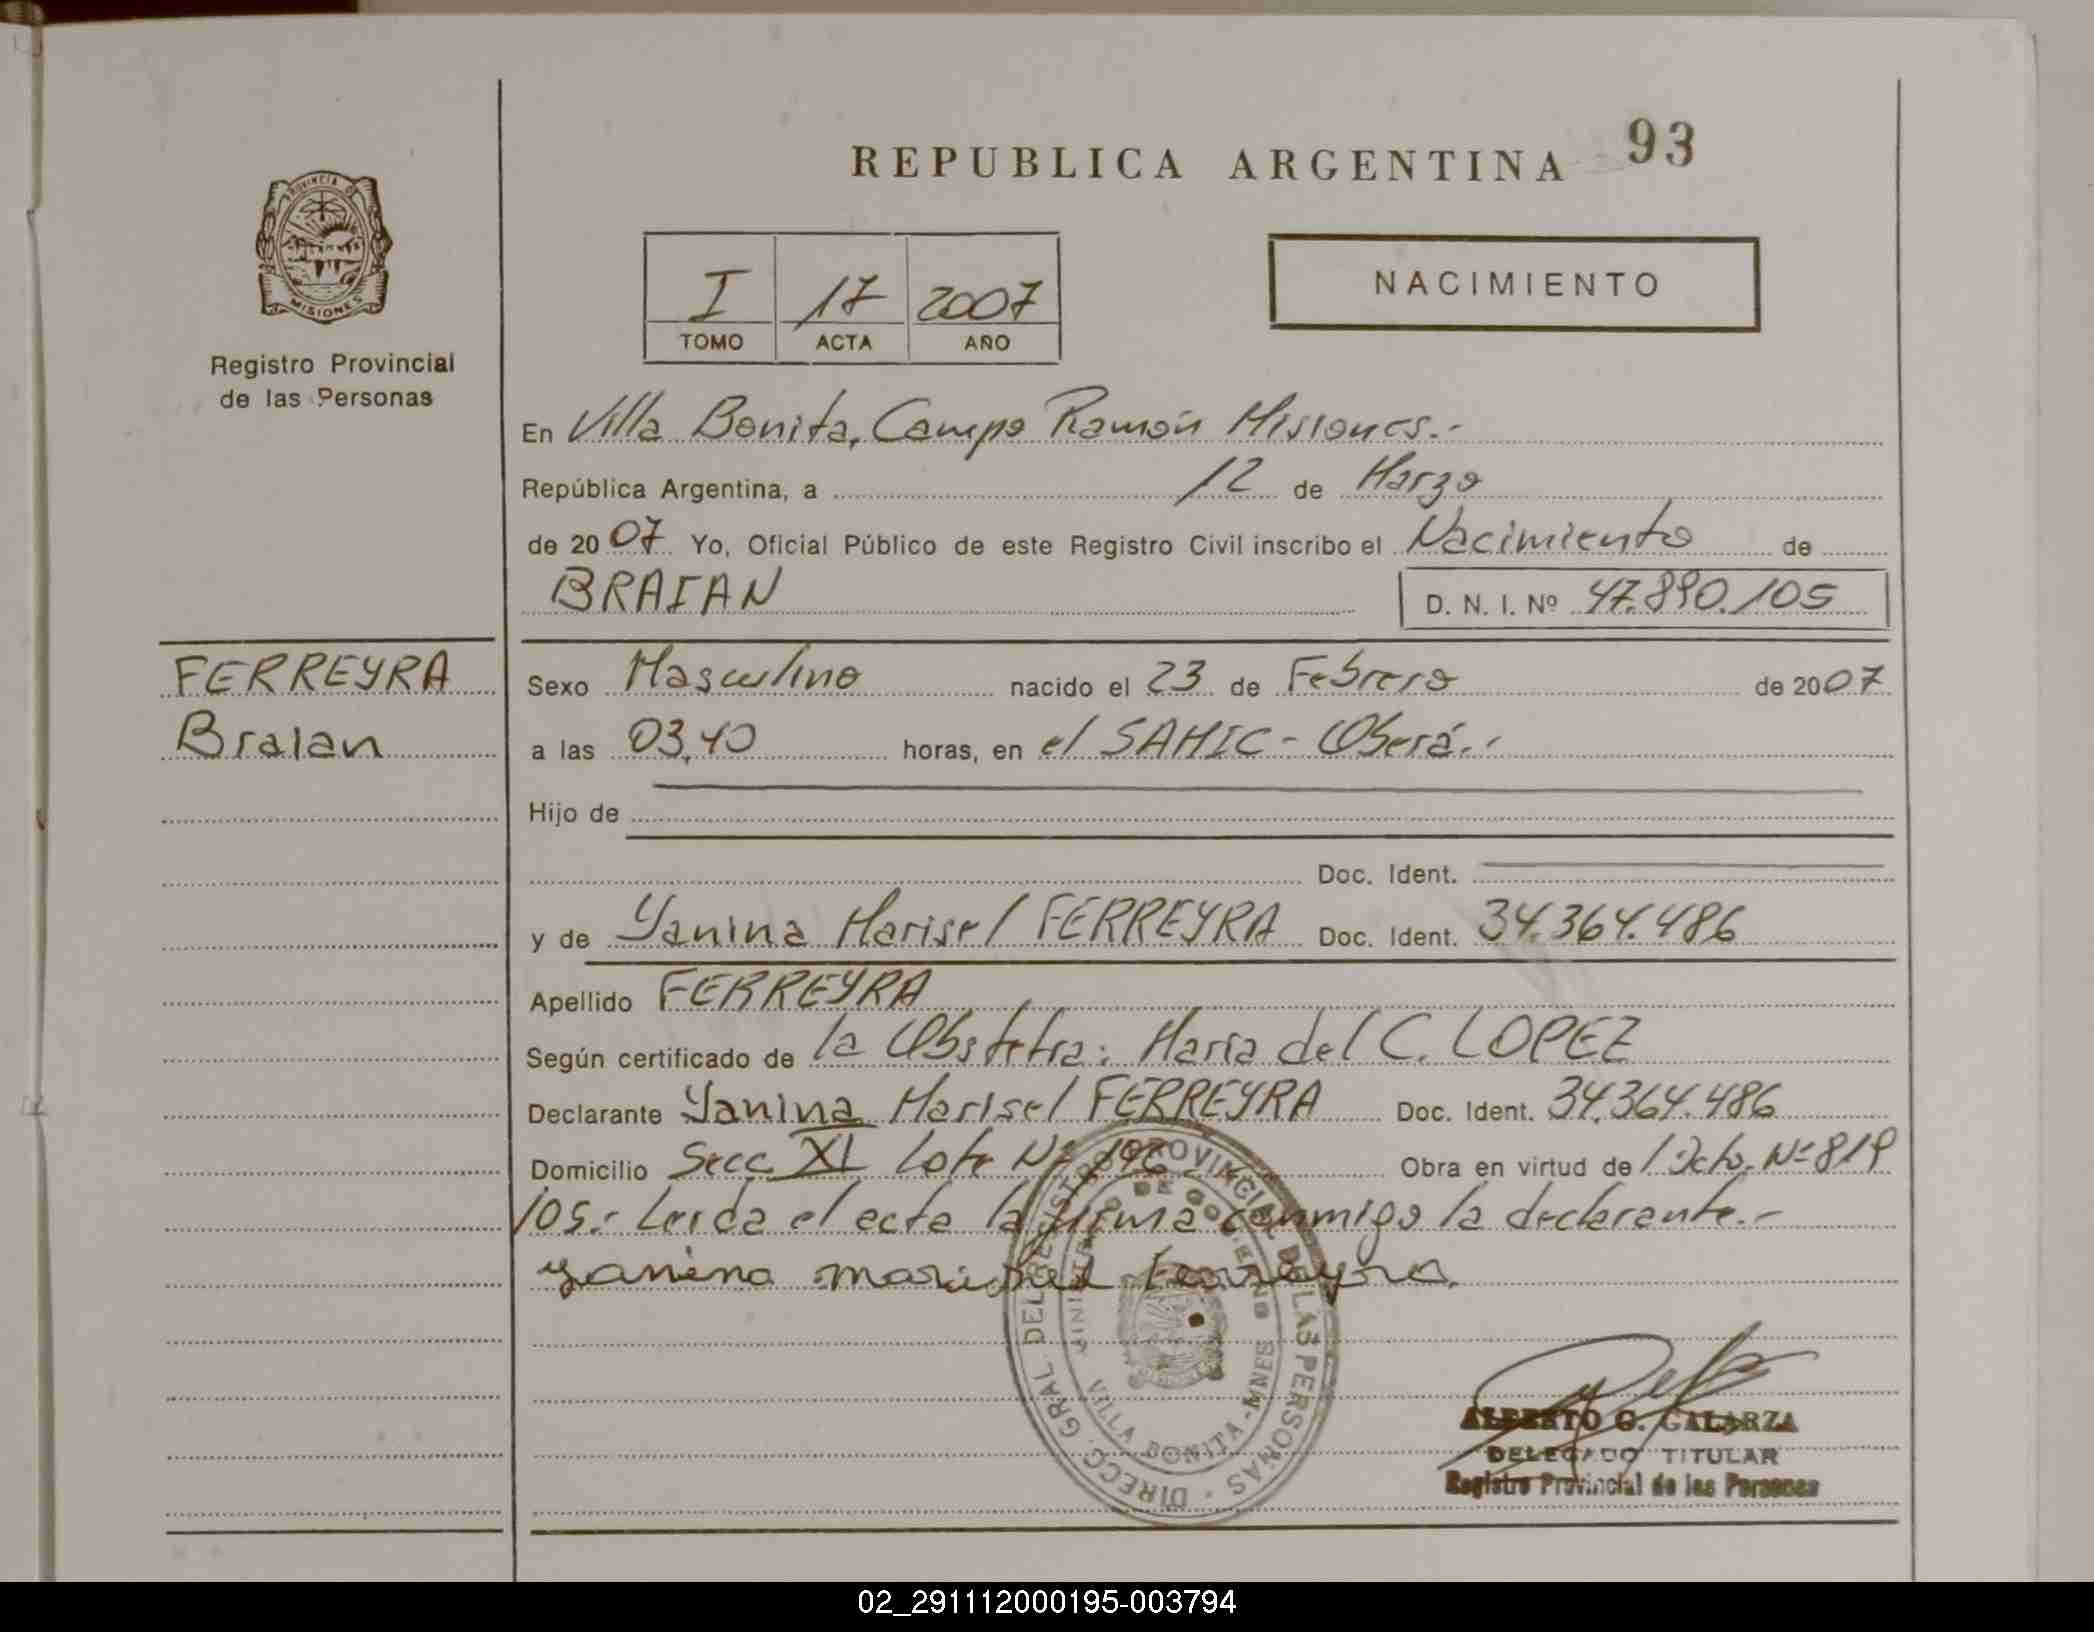 REPUBLICA ARGENTINA 93
PROVINCIA DE
MISIONES
Registro Provincial
de las Personas
I 17 2007
TOMO ACTA AÑO
NACIMIENTO
En Villa Bonita, Campo Ramón Misiones.-
República Argentina, a 12 de Marzo
de 2007 Yo, Oficial Público de este Registro Civil inscribo el Nacimiento de
BRAIAN D. N. I. Nº 47.890.105
FERREYRA
Braian
Sexo Masculino nacido el 23 de Febrero de 2007
a las 03,40 horas, en el SAMIC - Oberá.-
Hijo de
Doc. Ident.
y de Yanina Marisel FERREYRA Doc. Ident. 34.364.486
Apellido FERREYRA
Según certificado de la Obstetra: Maria del C. LOPEZ
Declarante Yanina Marisel FERREYRA Doc. Ident. 34.364.486
Domicilio Secc. XI Lote Nº 196 Obra en virtud de Dcto. Nº 819
Leida el acta la firma conmigo la declarante.-
yanina marisel Ferreyra.
DIRECC. GRAL DEL REGISTRO PROVINCIAL DE LAS PERSONAS
MINISTERIO DE GOBIERNO
VILLA BONITA - MNES
ALBERTO G. GALARZA
DELEGADO TITULAR
Registro Provincial de las Personas
02_291112000195-003794